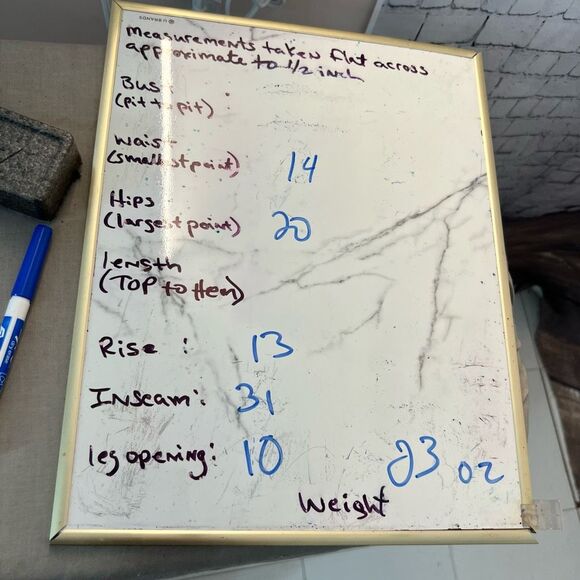 U BRANDS
measurements taken flat across
approximate to 1/2 inch
Bust :
(pit to pit)
waist
(smallest point) 14
Hips
(largest point) 20
length
(TOP to Hem)
Rise : 13
Inseam: 31
leg opening: 10
23 oz
Weight